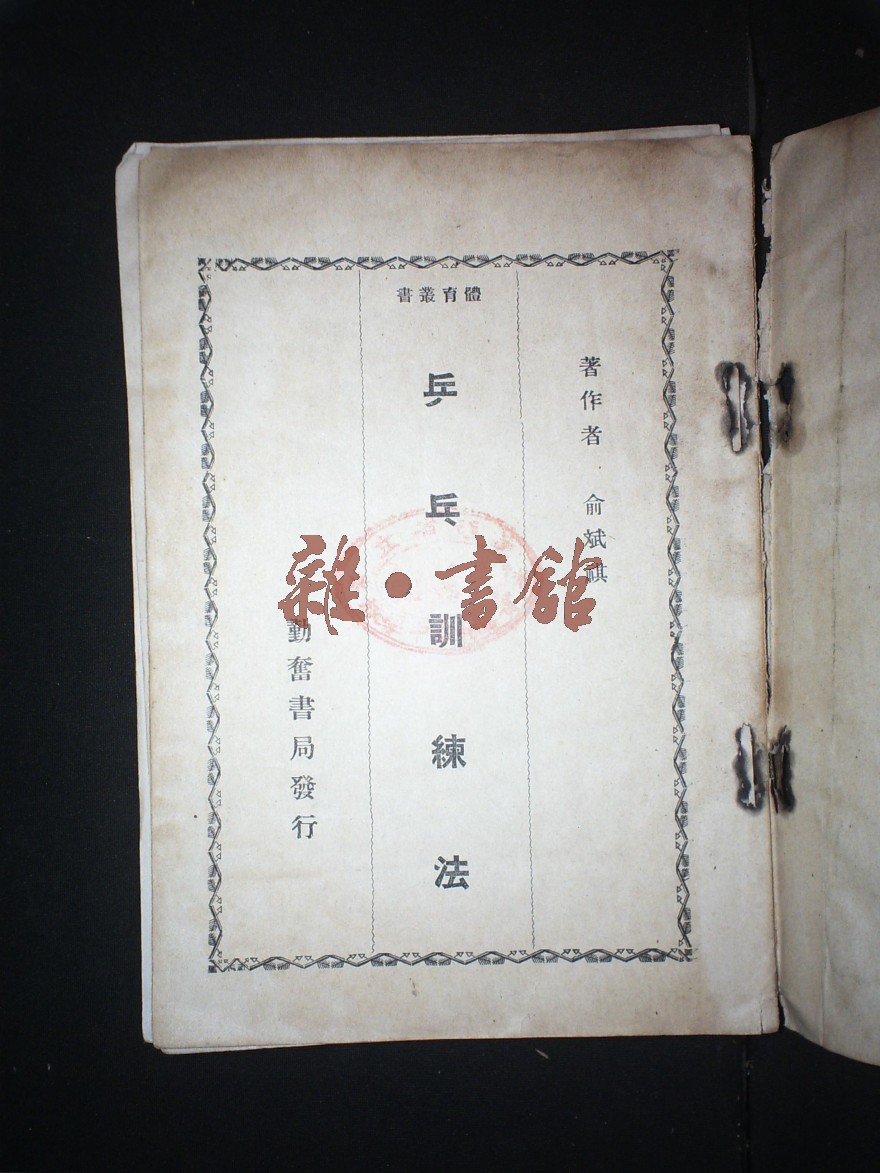 著作者 俞斌祺
體育叢書
乒乓訓練法
勤奮書局發行
雜·書館